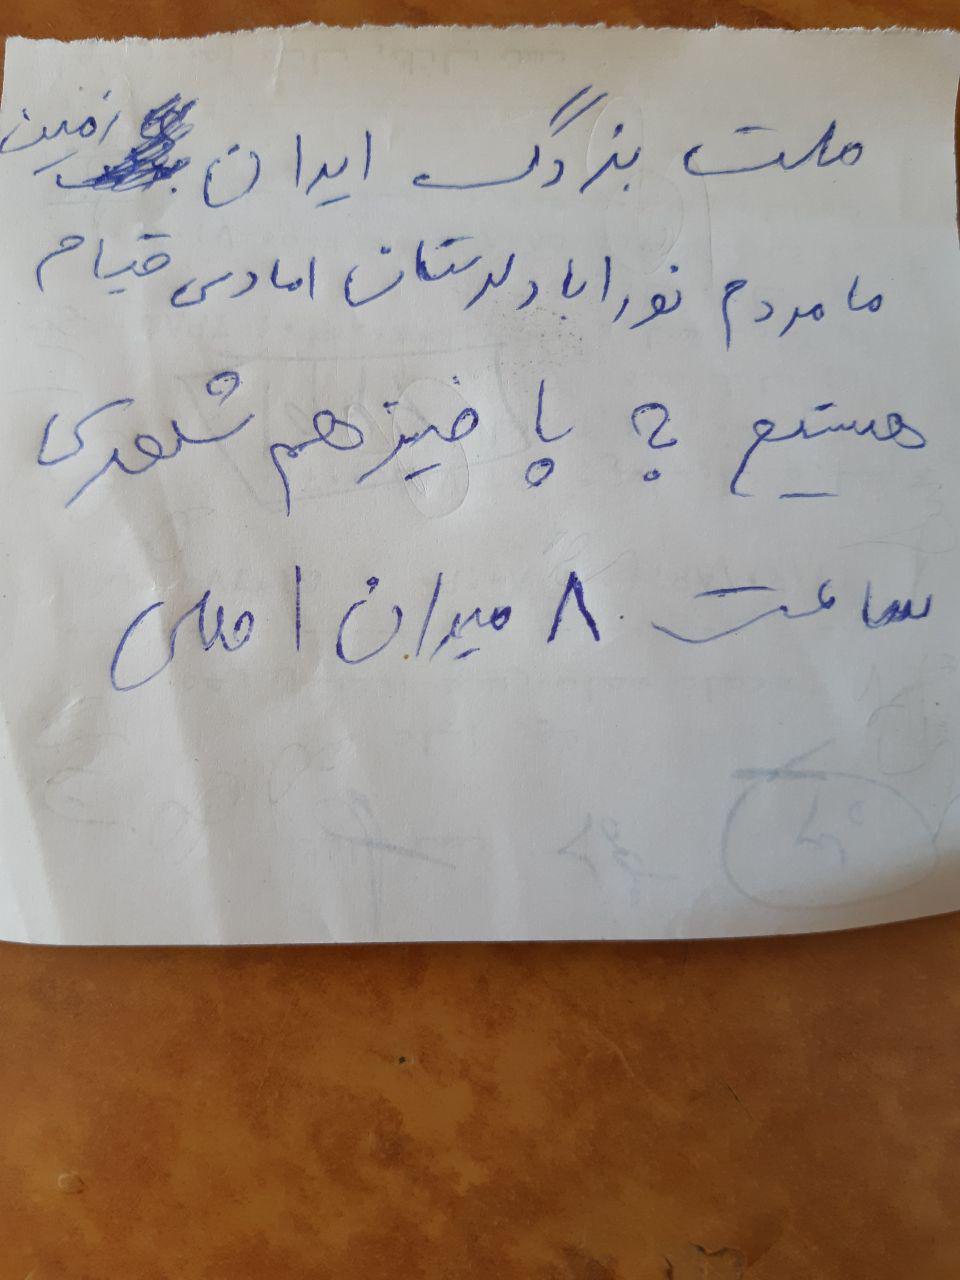 ملت بزرگ ایران زمین
ما مردم نوراباد لرستان امادی قیام
هستیم بپاخیزهم شهری
ساعت ۸ میدان اصلی